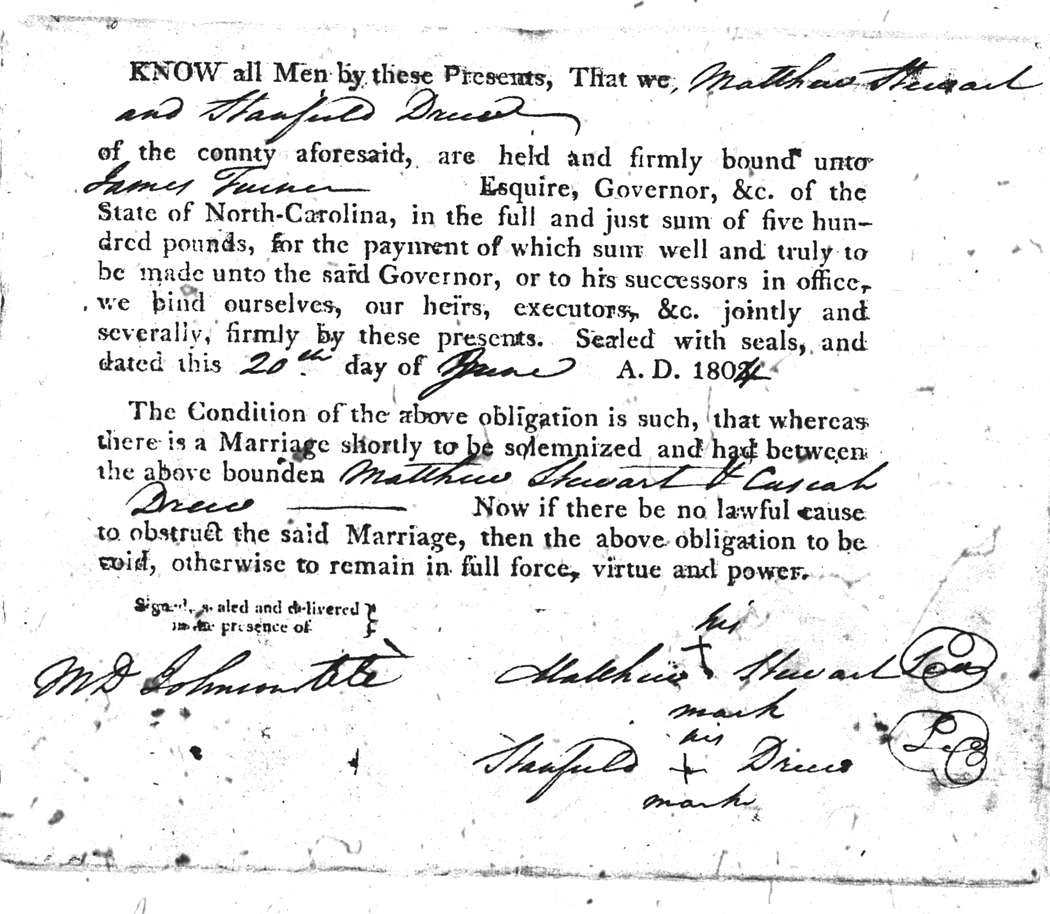 KNOW all Men by these Presents, That we, Matthew Stewart
and Stanfield Drew
of the county aforesaid, are held and firmly bound unto
James Turner Esquire, Governor, &c. of the
State of North-Carolina, in the full and just sum of five hun-
dred pounds, for the payment of which sum well and truly to
be made unto the said Governor, or to his successors in office,
we bind ourselves, our heirs, executors, &c. jointly and
severally, firmly by these presents. Sealed with seals, and
dated this 20th day of June A. D. 1804
The Condition of the above obligation is such, that whereas
there is a Marriage shortly to be solemnized and had between
the above bounden Matthew Stewart & Casiah
Drew Now if there be no lawful cause
to obstruct the said Marriage, then the above obligation to be
void, otherwise to remain in full force, virtue and power.
Signed, sealed and delivered
in the presence of
his
M D Johnson Matthew + Stewart
mark
his
Stanfield + Drew
mark